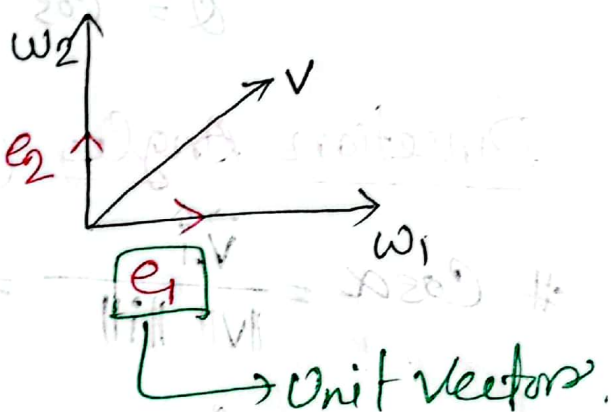 w2
V
e2
w1
e1
Unit Vectors.